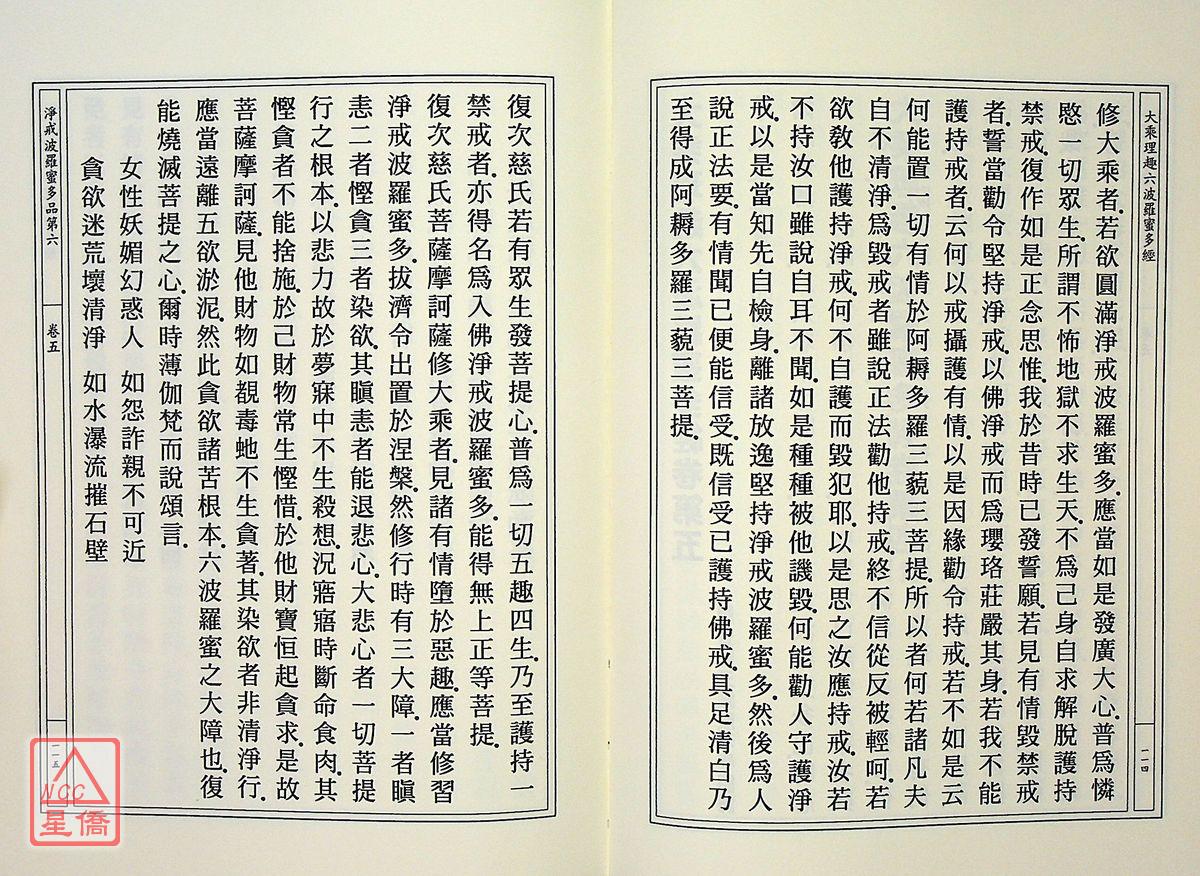 大乘理趣六波羅蜜多經
一一四
修大乘者.若欲圓滿淨戒波羅蜜多.應當如是發廣大心.普爲憐
愍一切眾生.所謂不怖地獄不求生天.不爲己身自求解脫護持
禁戒.復作如是正念思惟.我於昔時已發誓願.若見有情毀禁戒
者.誓當勸令堅持淨戒.以佛淨戒而爲瓔珞莊嚴其身.若我不能
護持戒者.云何以戒攝護有情.以是因緣勸令持戒.若不如是云
何能置一切有情於阿耨多羅三藐三菩提.所以者何若諸凡夫
自不清淨.爲毀戒者雖說正法勸他持戒.終不信從反被輕呵.若
欲教他護持淨戒.何不自護而毀犯耶.以是思之汝應持戒.汝若
不持汝口雖說自耳不聞.如是種種被他譏毀.何能勸人守護淨
戒.以是當知先自檢身.離諸放逸堅持淨戒波羅蜜多.然後爲人
說正法要.有情聞已便能信受.既信受已護持佛戒.具足清白乃
至得成阿耨多羅三藐三菩提.
復次慈氏若有眾生發菩提心.普爲一切五趣四生.乃至護持一
禁戒者.亦得名爲入佛淨戒波羅蜜多.能得無上正等菩提.
復次慈氏菩薩摩訶薩修大乘者.見諸有情墮於惡趣.應當修習
淨戒波羅蜜多.拔濟令出置於涅槃.然修行時有三大障.一者瞋
恚二者慳貪三者染欲.其瞋恚者能退悲心.大悲心者一切菩提
行之根本.以悲力故於夢寐中不生殺想.況寤寤時斷命食肉.其
慳貪者不能捨施.於己財物常生慳惜.於他財寶恒起貪求.是故
菩薩摩訶薩.見他財物如覩毒虵不生貪著.其染欲者非清淨行.
應當遠離五欲淤泥.然此貪欲諸苦根本.六波羅蜜之大障也.復
能燒滅菩提之心.爾時薄伽梵而說頌言.
女性妖媚幻惑人　如怨詐親不可近
貪欲迷荒壞清淨　如水瀑流摧石壁
淨戒波羅蜜多品第六
卷五
一一五
NCC
星僑